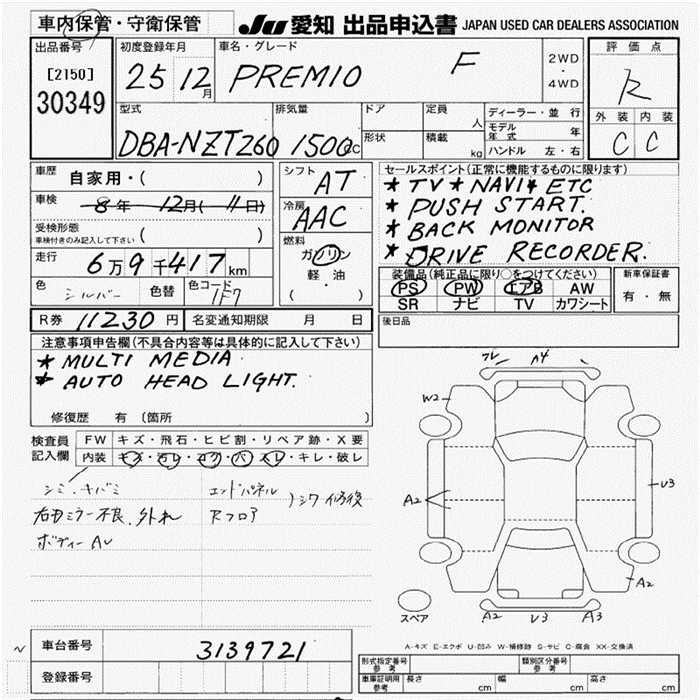 車内保管・守衛保管
JU 愛知 出品申込書 JAPAN USED CAR DEALERS ASSOCIATION
出品番号
[2150]
30349
初度登録年月
25 12月
車名・グレード
PREMIO F
2WD
・
4WD
評価点
R
外装 内装
C C
型式
DBA-NZT260
排気量
1500cc
ドア
形状
定員 人
積載 kg
ディーラー・並行
モデル年式 年
ハンドル 左・右
車歴
自家用・( )
車検
8年 12月( 11日)
受検形態
車検付きのみ記入して下さい ( )
走行
6万9千417km
色
シルバー
色替
色コード
1F7
シフト
AT
冷房
AAC
燃料
ガソリン
軽・油
( )
セールスポイント(正常に機能するものに限ります)
★ TV ★ NAVI ★ ETC
★ PUSH START.
★ BACK MONITOR
★ DRIVE RECORDER.
装備品(純正品に限り○をつけてください)
PS PW エアB AW
SR ナビ TV カワシート
新車保証書
有・無
R券 11230円
名変通知期限 月 日
後日品
注意事項申告欄(不具合内容等は具体的に記入して下さい)
★ MULTI MEDIA
★ AUTO HEAD LIGHT.
修復歴 有 〔箇所 〕
検査員
記入欄
FW キズ・飛石・ヒビ割・リペア跡・X要
内装 キズ・汚レ・コゲ・穴・スレ・キレ・破レ
シミ、キバミ
右田ミラー不良、外れ
ボディーAU
エンドパネル
Rフロア
シワ修後
フレ A4
W2
A2
V3
A2
A2 V3 A3
スペア
A-キズ E-エクボ U-凹み W-補修跡 S-サビ C-腐食 XX-交換済
車台番号
3139721
登録番号
型式指定番号 参考
類別区分番号 参考
車庫証明用 参考
長さ cm
幅 cm
高さ cm